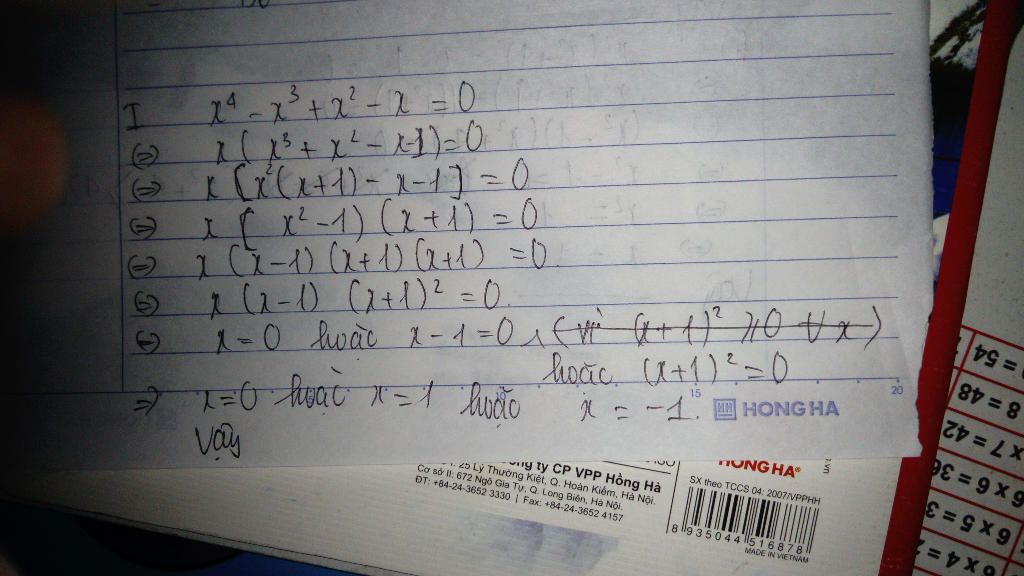 I x⁴ - x³ + x² - x = 0
(=) x( x³ + x² - x-1)=0
(=) x [x²(x+1) - x-1] = 0
(=) x [ x² - 1) (x+1) = 0
(=) x (x-1) (x+1) (x+1) = 0
(=) x (x-1) (x+1)² = 0.
(=) x=0 hoặc x-1=0, (vì (x+1)² ≥0 ∀x)
hoặc (x+1)² = 0
=> x=0 hoặc x=1 hoặc x = -1.
Vậy
10 15 20
HONG HA
ty CP VPP Hồng Hà
25 Lý Thường Kiệt, Q. Hoàn Kiếm, Hà Nội.
Cơ sở II: 672 Ngô Gia Tự, Q. Long Biên, Hà Nội.
ĐT: +84-24-3652 3330 | Fax: +84-24-3652 4157
HONG HA®
SX theo TCCS 04: 2007/VPPHH
8 935044 516878
MADE IN VIETNAM
= 54
8 = 48
x 7 = 42
6 x 6 = 36
6 x 5 = 3
6 x 4 = 2